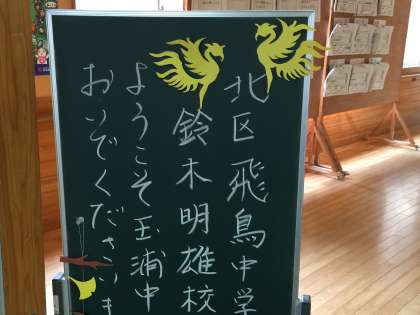 北区飛鳥中学
鈴木明雄校
ようこそ玉浦中
おいでくださいま